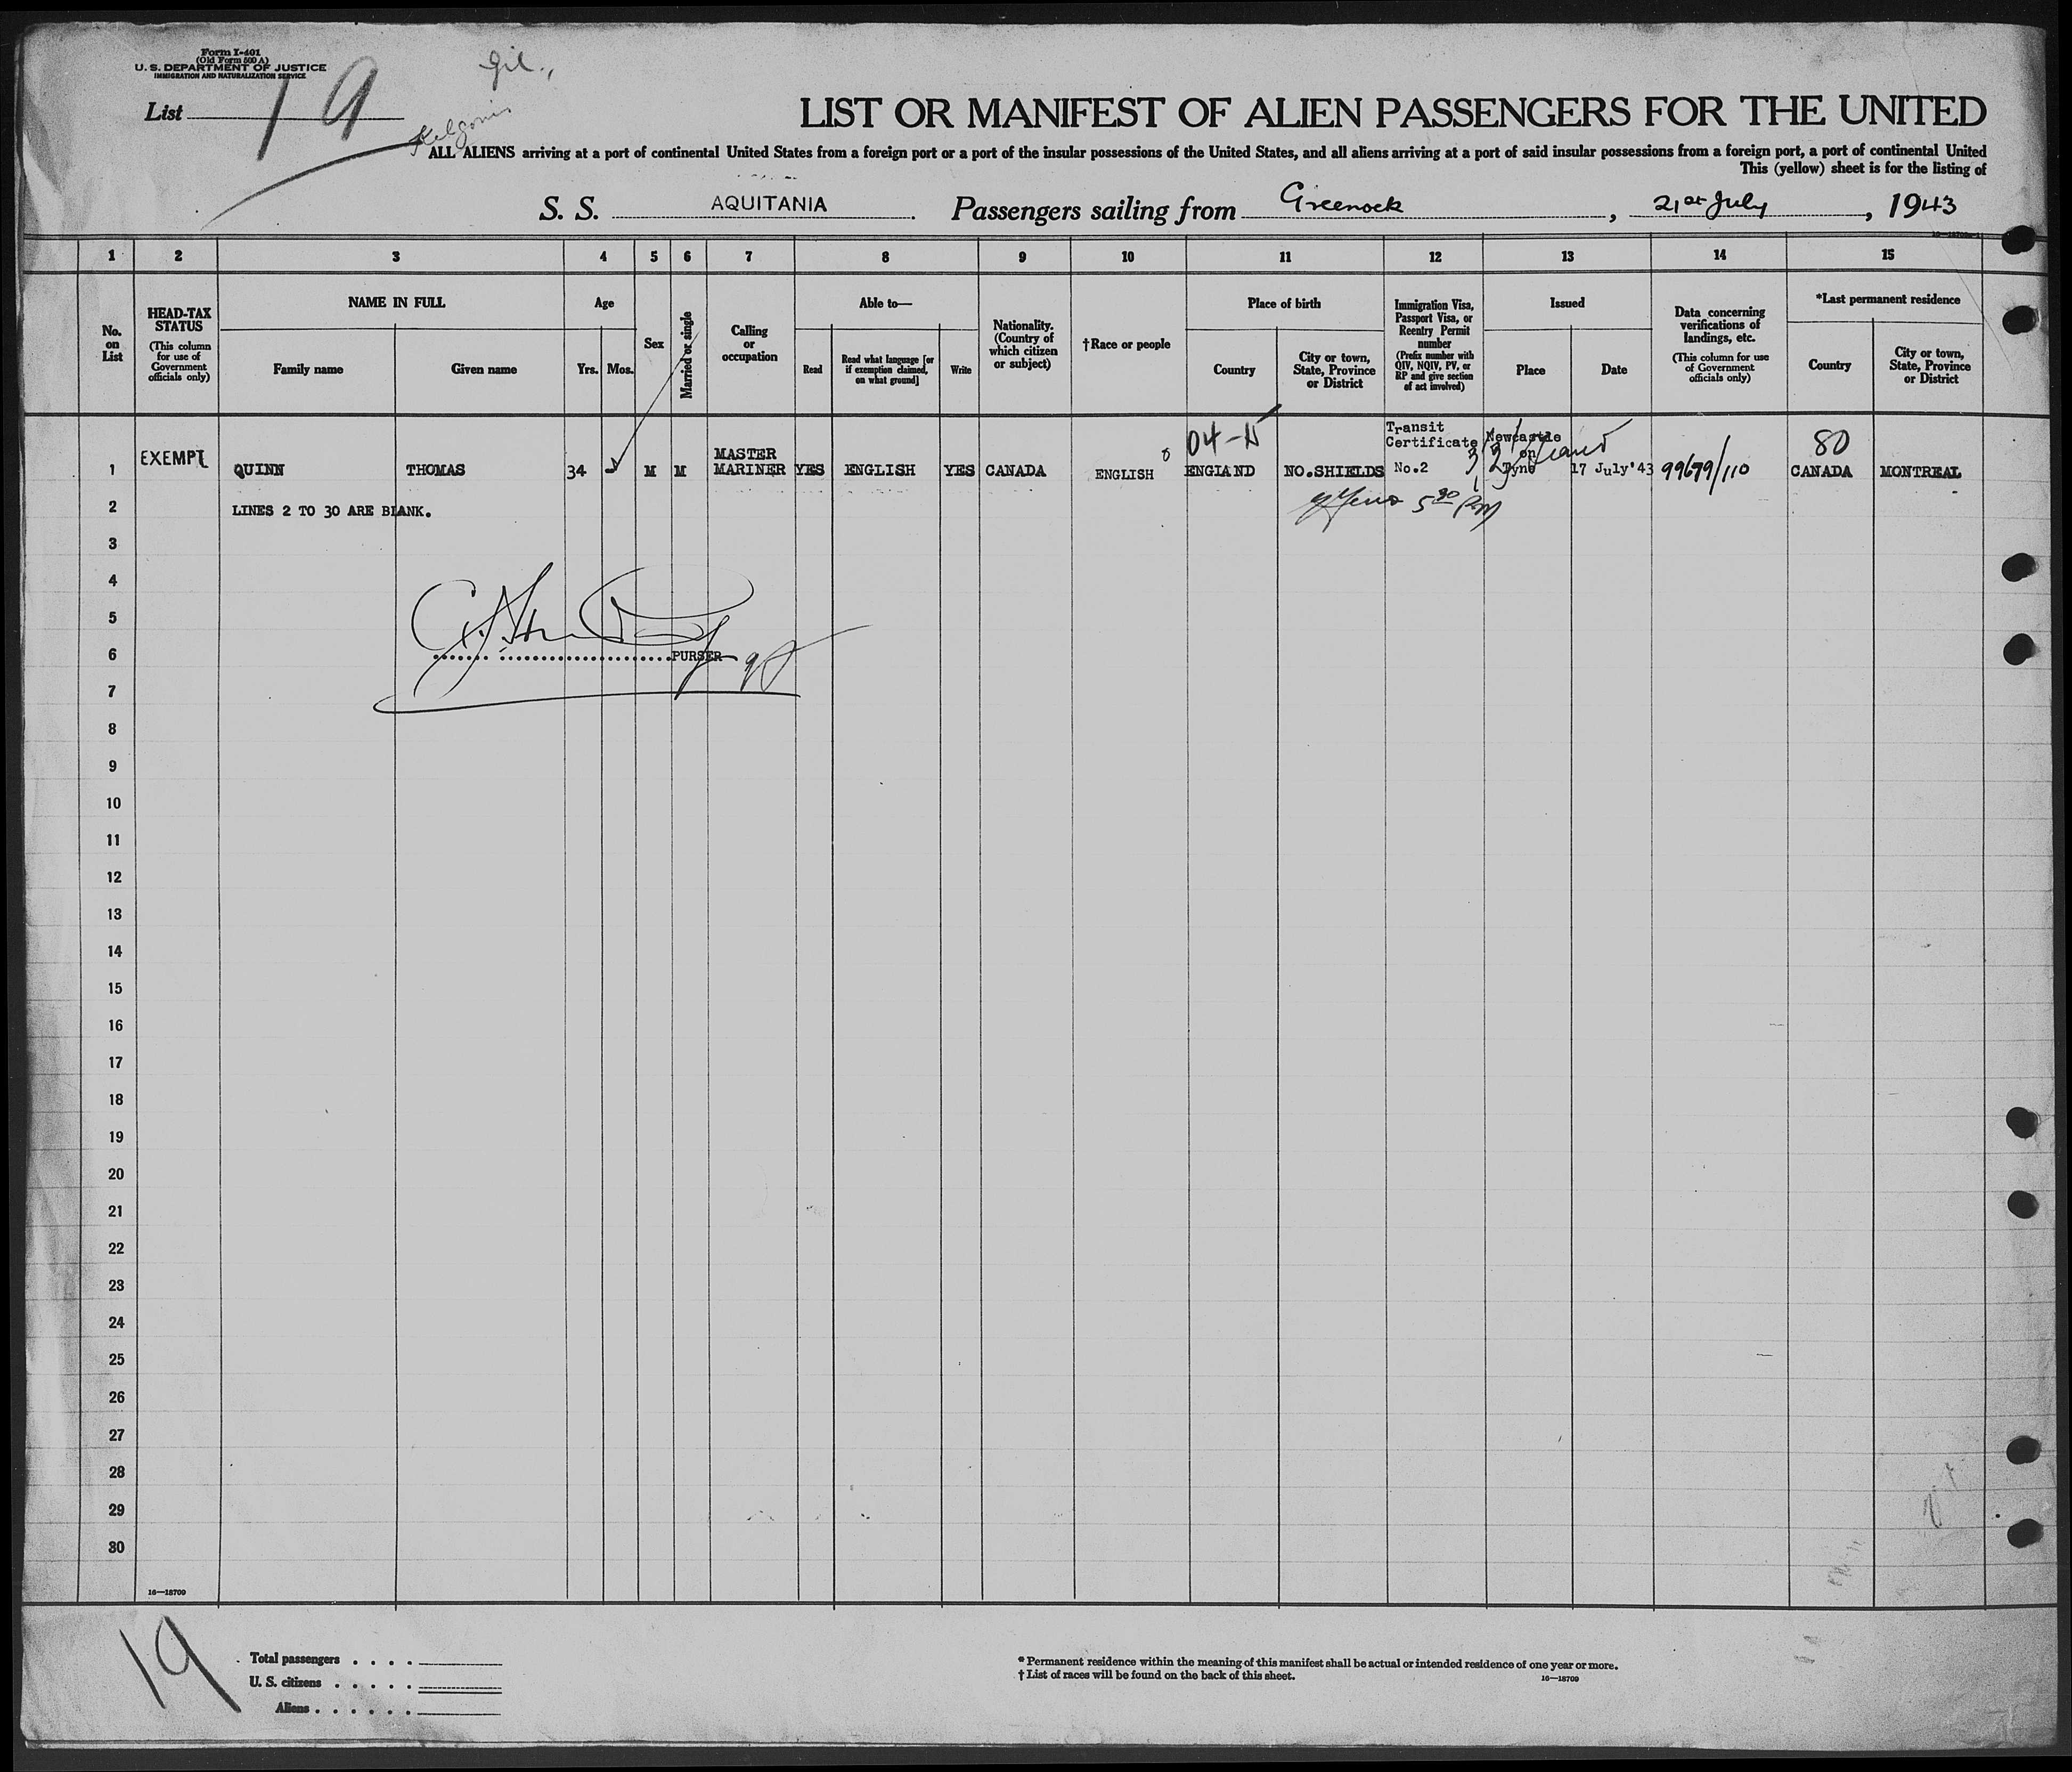 Form I-401
(Old Form 500 A)
U. S. DEPARTMENT OF JUSTICE
IMMIGRATION AND NATURALIZATION SERVICE
List 19
LIST OR MANIFEST OF ALIEN PASSENGERS FOR THE UNITED
ALL ALIENS arriving at a port of continental United States from a foreign port or a port of the insular possessions of the United States, and all aliens arriving at a port of said insular possessions from a foreign port, a port of continental United
This (yellow) sheet is for the listing of
S. S. AQUITANIA. Passengers sailing from Greenock, 21st July, 1943
1 2 3 4 5 6 7 8 9 10 11 12 13 14 15
No. on List
HEAD-TAX STATUS
(This column for use of Government officials only)
NAME IN FULL
Family name
Given name
Age
Yrs. Mos.
Sex
Married or single
Calling or occupation
Able to—
Read
Read what language [or if exemption claimed, on what ground]
Write
Nationality. (Country of which citizen or subject)
†Race or people
Place of birth
Country
City or town, State, Province or District
Immigration Visa, Passport Visa, or Reentry Permit number
(Prefix number with QIV, NQIV, PV, or RP and give section of act involved)
Issued
Place
Date
Data concerning verifications of landings, etc.
(This column for use of Government officials only)
*Last permanent residence
Country
City or town, State, Province or District
1 EXEMPT QUINN THOMAS 34 M M MASTER MARINER YES ENGLISH YES CANADA ENGLISH ENGLAND NO.SHIELDS Transit Certificate No.2 Newcastle on Tyne 17 July'43 99679/110 80 CANADA MONTREAL
2 LINES 2 TO 30 ARE BLANK.
3
4
5
6 PURSER
7
8
9
10
11
12
13
14
15
16
17
18
19
20
21
22
23
24
25
26
27
28
29
30
16—18709
19
Total passengers . . . .
U. S. citizens . . . . .
Aliens . . . . . .
* Permanent residence within the meaning of this manifest shall be actual or intended residence of one year or more.
† List of races will be found on the back of this sheet.
16—18709